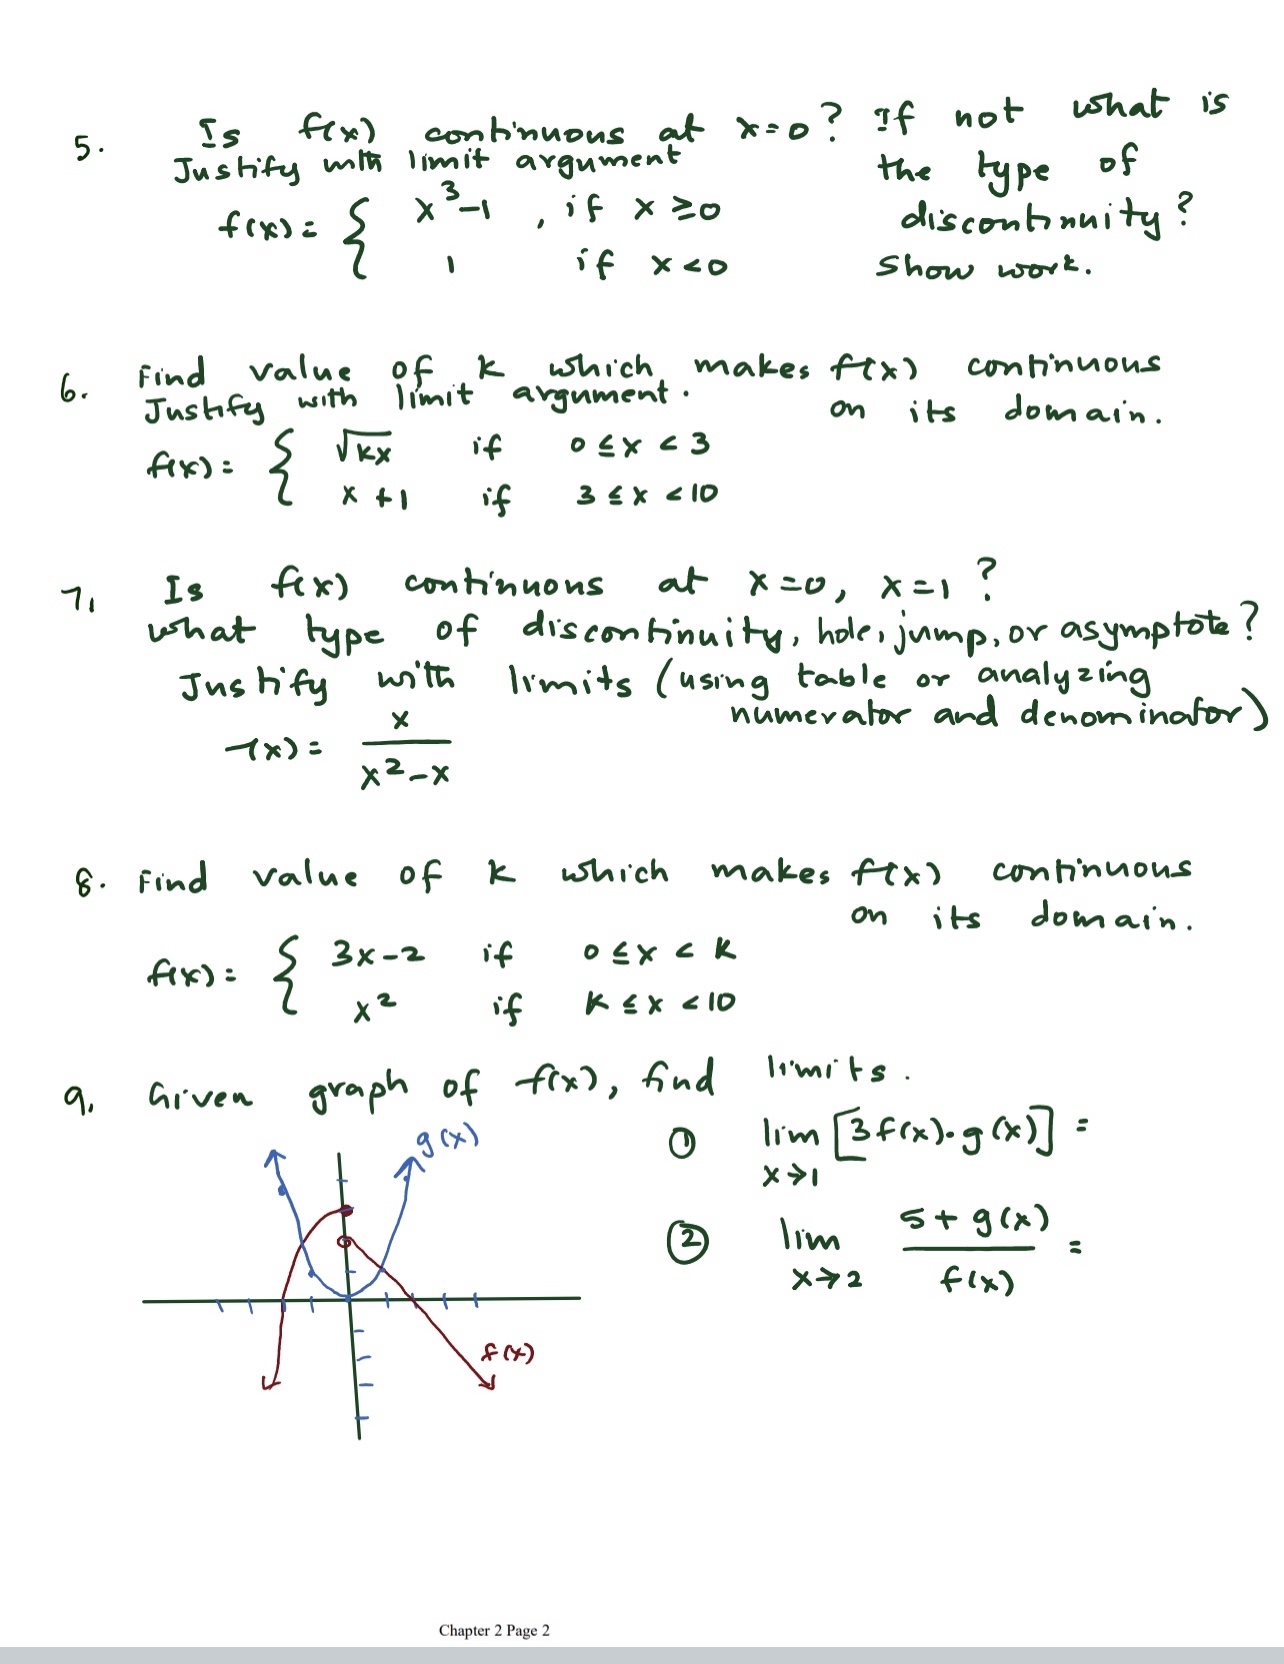 5. Is f(x) continuous at x=0? If not what is
Justify with limit argument the type of
f(x) = { x³-1 , if x ≥0 discontinuity?
1 if x <0 Show work.
6. Find value of k which makes f(x) continuous
Justify with limit argument. on its domain.
f(x) = { √kx if 0 ≤ x < 3
x +1 if 3 ≤ x < 10
7. Is f(x) continuous at x=0, x=1 ?
What type of discontinuity, hole, jump, or asymptote?
Justify with limits (using table or analyzing
numerator and denominator)
f(x) = x / x²-x
8. Find value of k which makes f(x) continuous
on its domain.
f(x) = { 3x-2 if 0 ≤ x < k
x² if k ≤ x < 10
9. Given graph of f(x), find limits.
g(x)
① lim x→1 [3f(x)·g(x)] =
② lim x→2 5+g(x) / f(x) =
f(x)
Chapter 2 Page 2